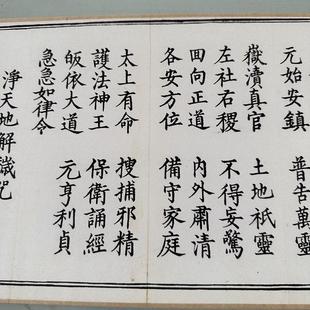 元始安鎮 普告萬靈
嶽瀆真官 土地祇靈
左社右稷 不得妄驚
囬向正道 內外肅清
各安方位 備守家庭
太上有命 搜捕邪精
護法神王 保衛誦經
皈依大道 元亨利貞
急急如律令
淨天地解穢咒